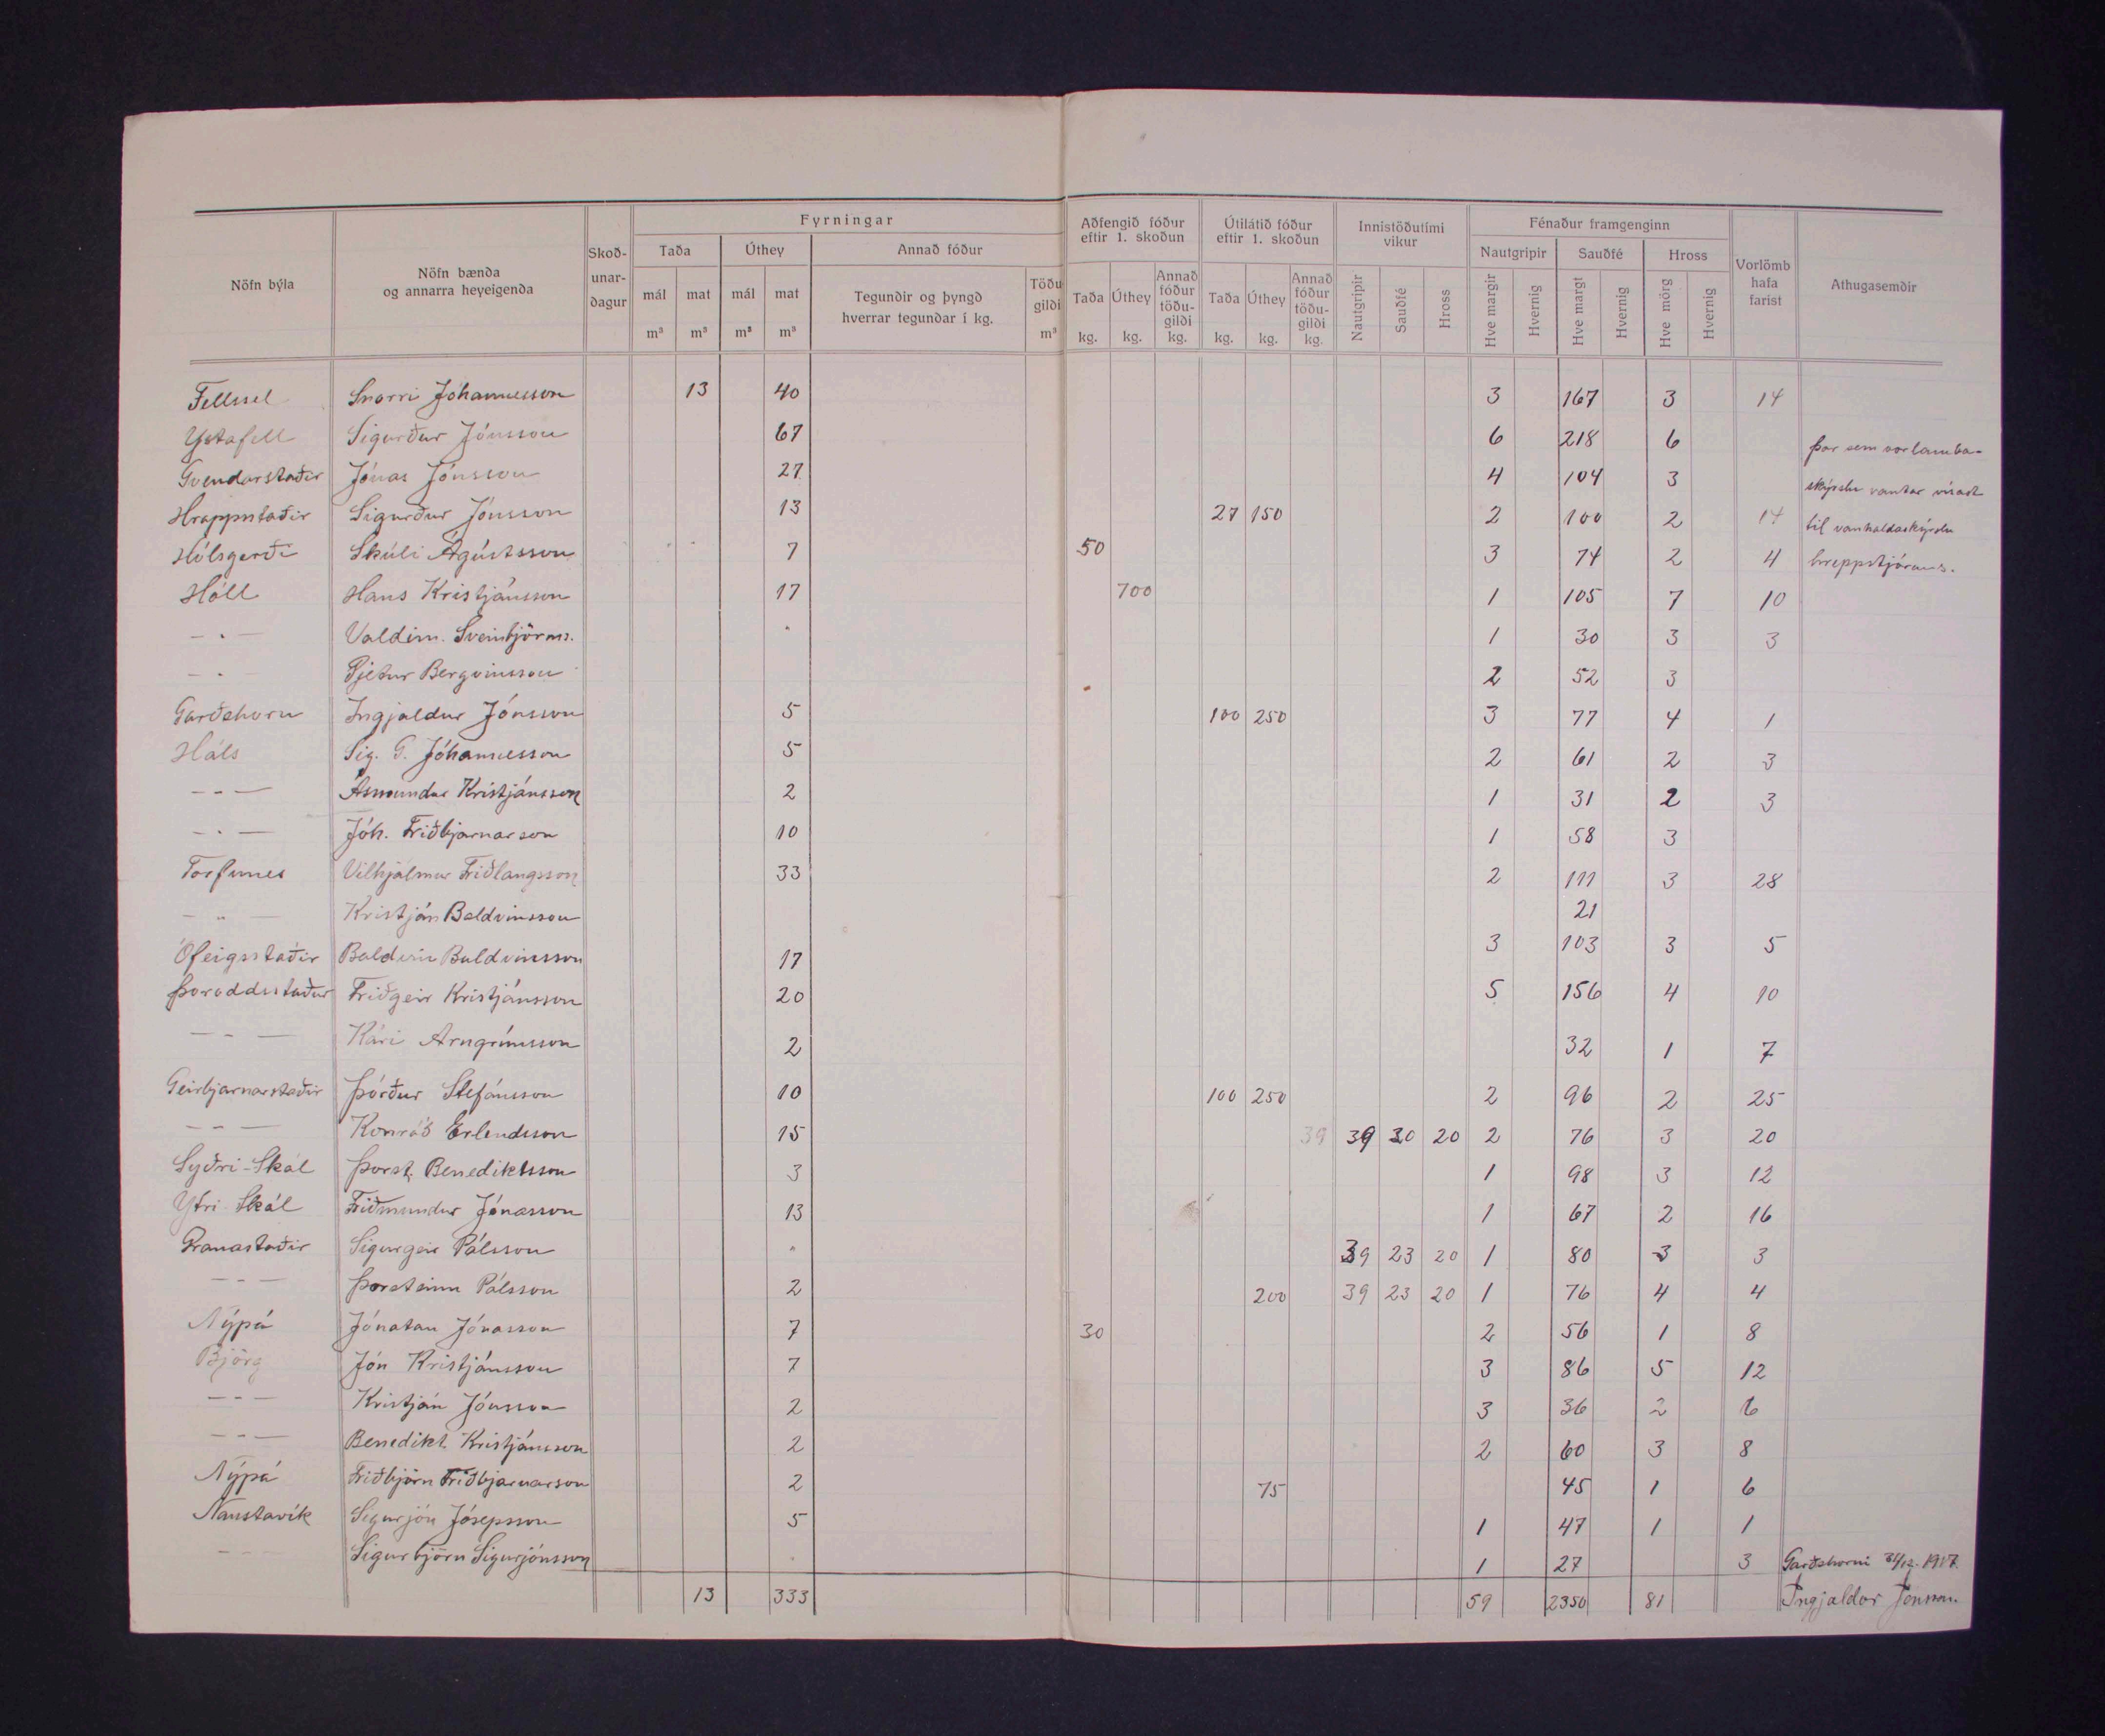 Fyrningar
Aðfengið fóður eftir 1. skoðun
Útilátið fóður eftir 1. skoðun
Innistöðutími vikur
Fénaður framgenginn
Nöfn býla
Nöfn bænda og annarra heyeigenda
Skoð-unar-dagur
Taða
Úthey
Annað fóður
Nautgripir
Sauðfé
Hross
Vorlömb hafa farist
Athugasemdir
mál m³
mat m³
mál m³
mat m³
Tegundir og þyngd hverrar tegundar í kg.
Töðu gildi m³
Taða kg.
Úthey kg.
Annað fóður töðu-gildi kg.
Taða kg.
Úthey kg.
Annað fóður töðu-gildi kg.
Nautgripir
Sauðfé
Hross
Hve margir
Hvernig
Hve margt
Hvernig
Hve mörg
Hvernig
Fellssel Snorri Jóhannesson 13 40 3 167 3 14
Ystafell Sigurður Jónsson 67 6 218 6
Þar sem vorlamba-
Gvendarstaðir Jónas Jónsson 27 4 104 3
skýrslu vantar vísast
Hrappstaðir Sigurður Jónsson 13 27 150 2 100 2 14
til vanhaldaskýrslu
Hólsgerði Skúli Ágústsson 7 50 3 74 2 4
hreppstjórans.
Hóll Hans Kristjánsson 17 700 1 105 7 10
— " — Valdim. Sveinbjörns. " 1 30 3 3
— " Pjetur Bergvinsson 2 52 3
Garðshorn Ingjaldur Jónsson 5 100 250 3 77 4 1
Háls Sig. G. Jóhannesson 5 2 61 2 3
— - — Ásmundur Kristjánsson 2 1 31 2 3
— - — Jóh. Friðbjarnarson 10 1 58 3
Torfunes Vilhjálmur Friðlaugsson 33 2 111 3 28
— " — Kristján Baldvinsson 21
Ófeigsstaðir Baldvin Baldvinsson 17 3 103 3 5
Þóroddsstaður Friðgeir Kristjánsson 20 5 156 4 10
— - — Kári Arngrímsson 2 32 1 7
Geirbjarnarstaðir Þórður Stefánsson 10 100 250 2 96 2 25
— - — Konráð Erlendsson 15 39 39 20 20 2 76 3 20
Syðri-Skál Þorst. Benediktsson 3 1 98 3 12
Ytri-Skál Friðmundur Jónasson 13 1 67 2 16
Granastaðir Sigurgeir Pálsson " 39 23 20 1 80 3 3
— - — Þorsteinn Pálsson 2 200 39 23 20 1 76 4 4
Nýpá Jónatan Jónasson 7 30 2 56 1 8
Björg Jón Kristjánsson 7 3 86 5 12
— - — Kristján Jónsson 2 3 36 2 6
— - — Benedikt Kristjánsson 2 2 60 3 8
Nýpá Friðbjörn Friðbjarnarson 2 75 45 1 6
Naustavík Sigurjón Jósepsson 5 1 47 1 1
— - — Sigurbjörn Sigurjónsson 1 27 3 Garðshorni 31/12. 1917
13 333 59 2350 81 Ingjaldur Jónsson